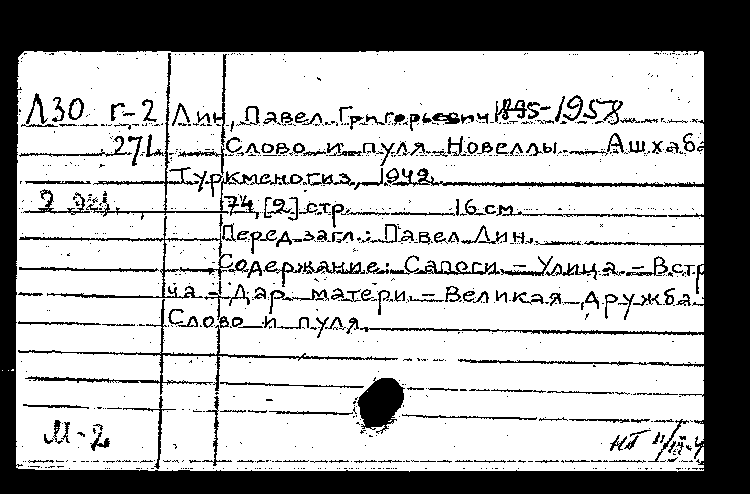 Л30 Г-2 Лин, Павел Григорьевич 1895-1958
271 Слово и пуля Новеллы. Ашхаба
Туркменогиз, 1942.
2 экз. 74,[2] стр. 16 см.
Перед загл.: Павел Лин.
Содержание: Сапоги. – Улица. – Встр
ча – Дар матери. – Великая дружба –
Слово и пуля.
М-2